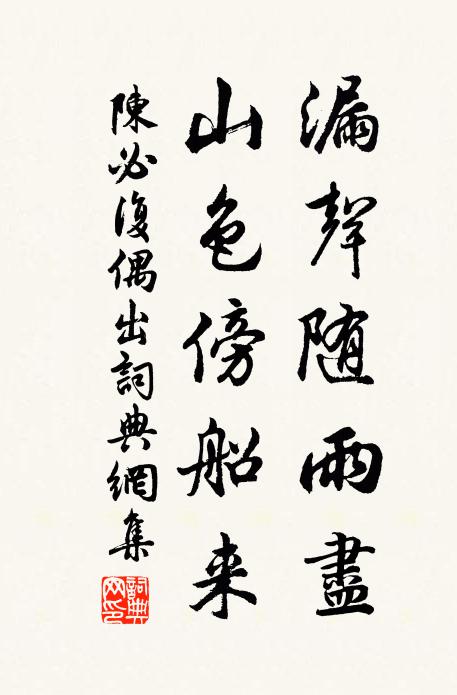 漏聲随雨盡
山色傍船来
陳必復偶出詞典網集
詞典网印